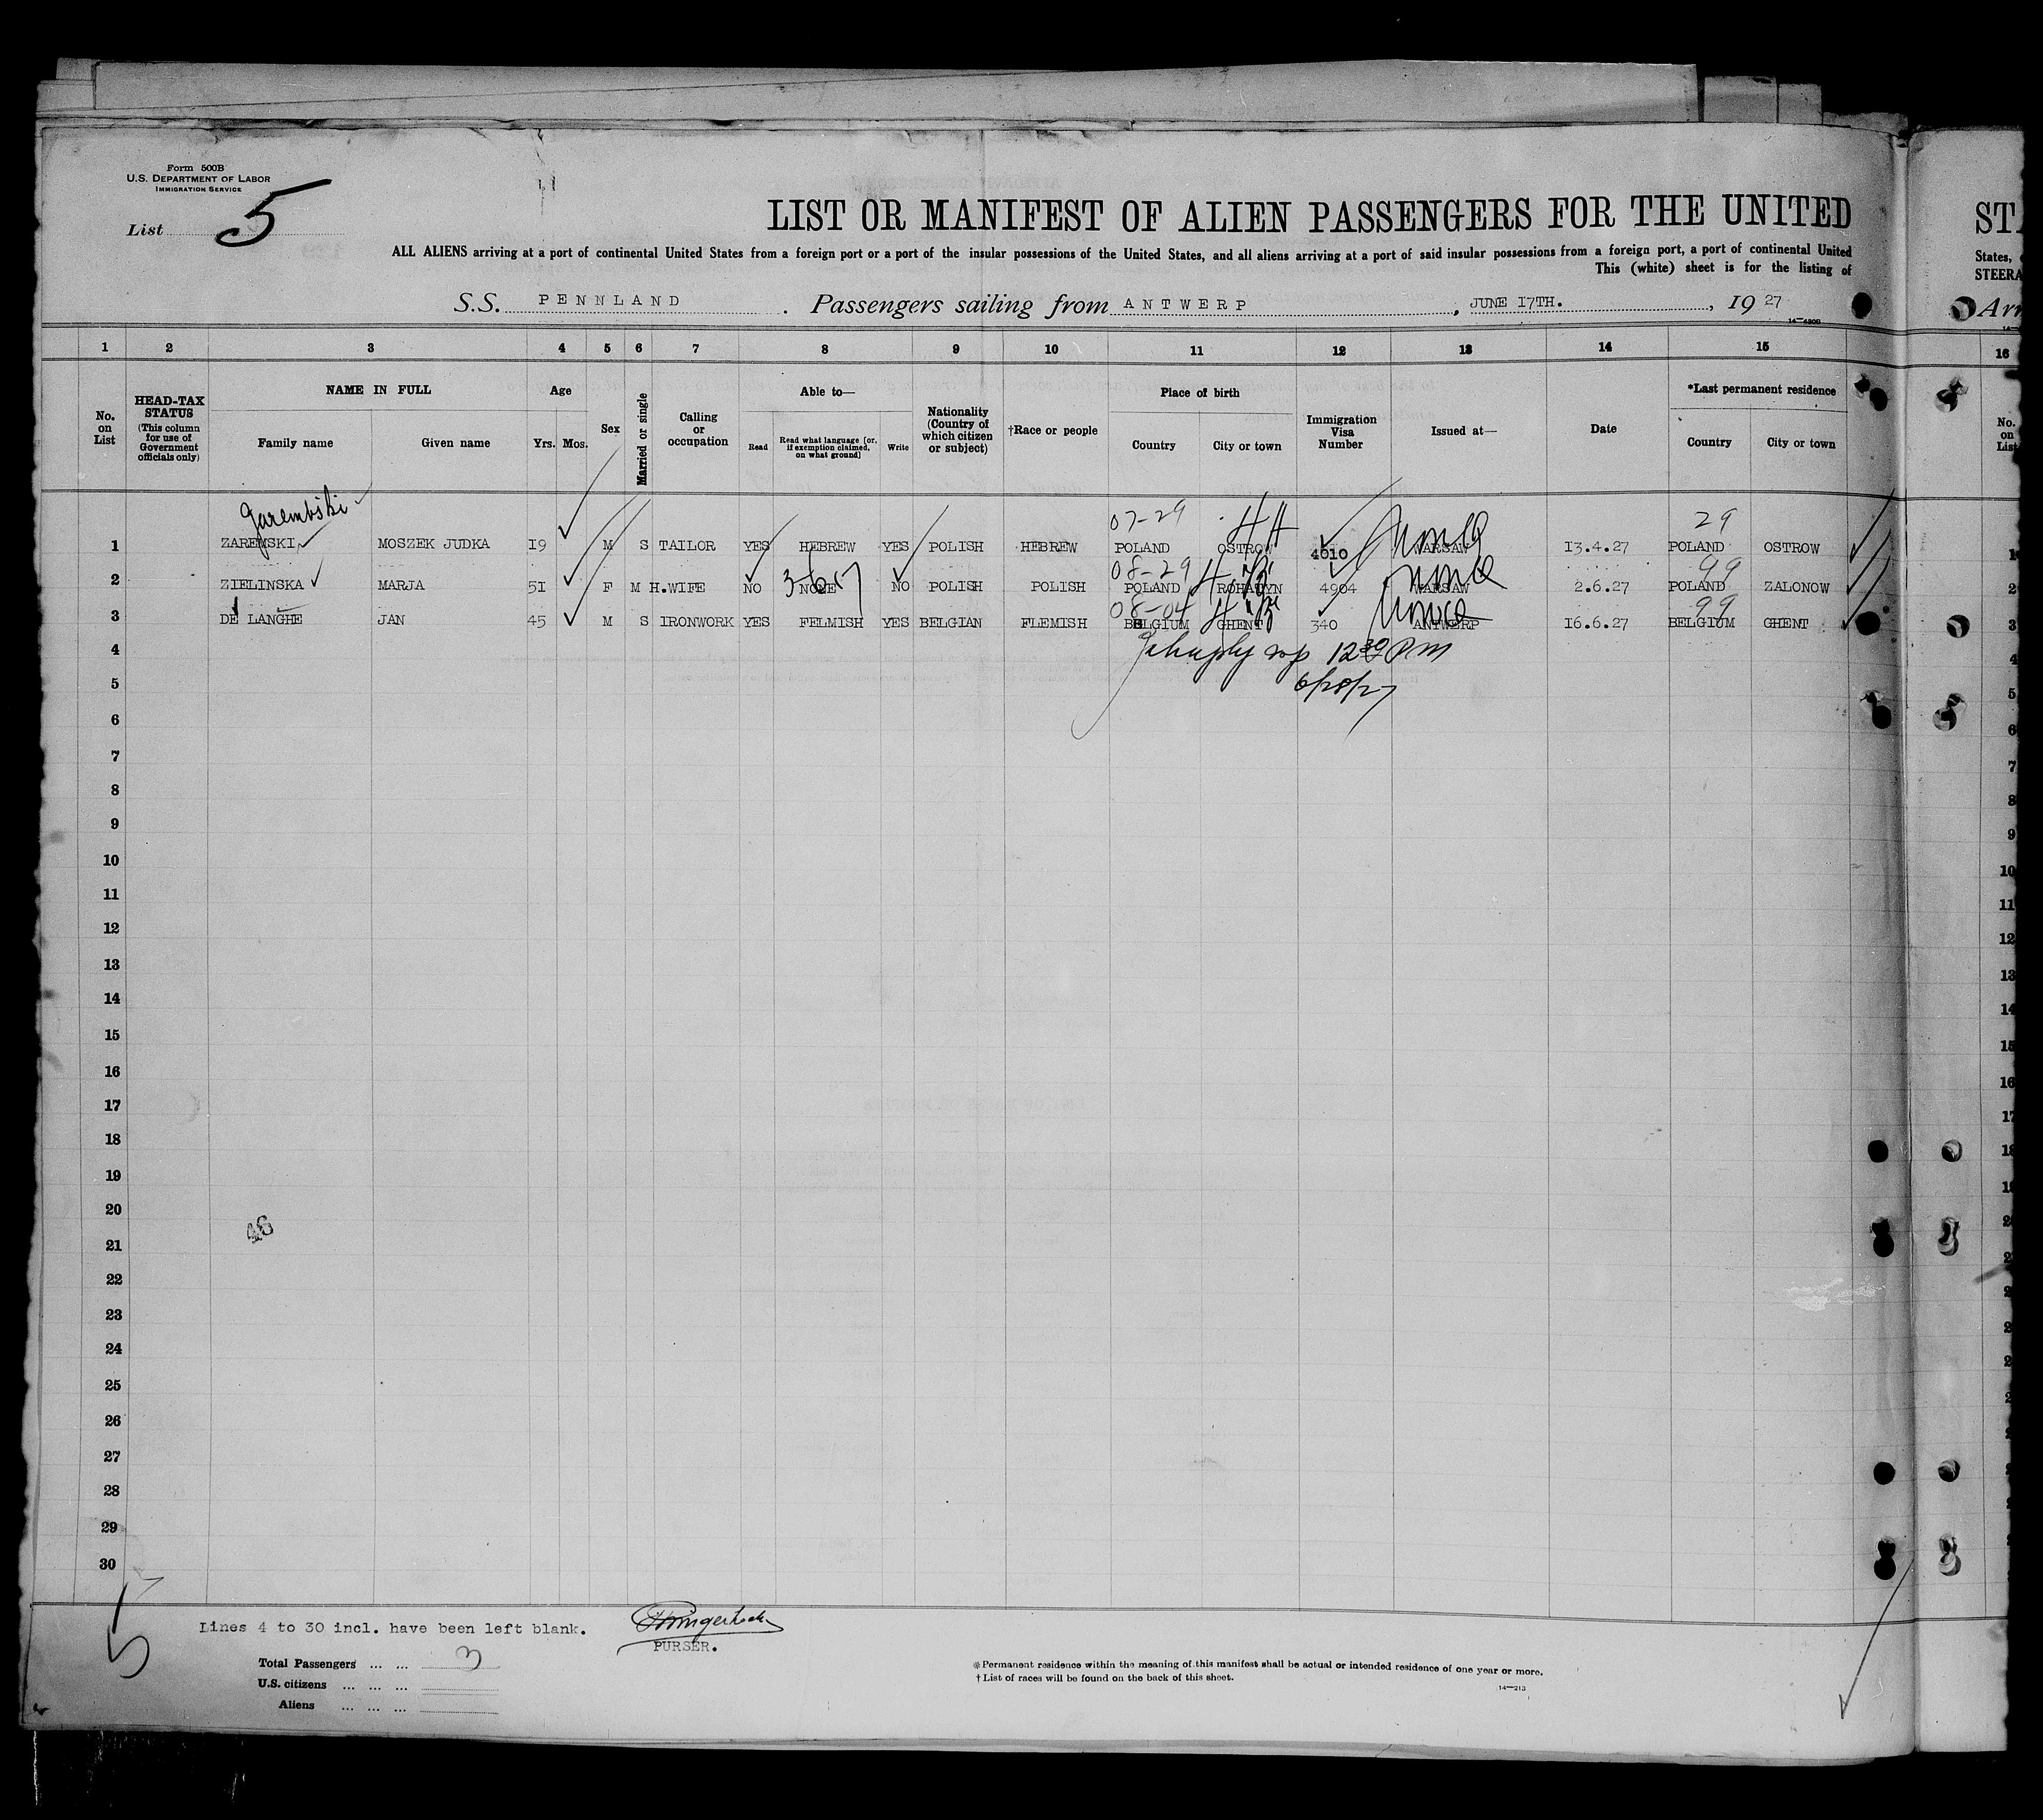 Form 500B
U.S. DEPARTMENT OF LABOR
IMMIGRATION SERVICE
List 5
LIST OR MANIFEST OF ALIEN PASSENGERS FOR THE UNITED
ALL ALIENS arriving at a port of continental United States from a foreign port or a port of the insular possessions of the United States, and all aliens arriving at a port of said insular possessions from a foreign port, a port of continental United
This (white) sheet is for the listing of
S.S. PENNLAND . Passengers sailing from ANTWERP , JUNE 17TH. , 19 27
14-4200
1 2 3 4 5 6 7 8 9 10 11 12 13 14 15
No. on List
HEAD-TAX STATUS (This column for use of Government officials only)
NAME IN FULL
Family name Given name
Age
Yrs. Mos.
Sex
Married or single
Calling or occupation
Able to—
Read Read what language [or, if exemption claimed, on what ground] Write
Nationality (Country of which citizen or subject)
†Race or people
Place of birth
Country City or town
Immigration Visa Number
Issued at—
Date
*Last permanent residence
Country City or town
Garembski 07-29 29
1 ZAREMSKI MOSZEK JUDKA 19 M S TAILOR YES HEBREW YES POLISH HEBREW POLAND OSTROW 4010 WARSAW 13.4.27 POLAND OSTROW
08-29 99
2 ZIELINSKA MARJA 51 F M H.WIFE NO NONE NO POLISH POLISH POLAND ROHATYN 4904 WARSAW 2.6.27 POLAND ZALONOW
08-04 99
3 DE LANGHE JAN 45 M S IRONWORK YES FELMISH YES BELGIAN FLEMISH BELGIUM GHENT 340 ANTWERP 16.6.27 BELGIUM GHENT
4 12 30 PM
5 6/28/27
6
7
8
9
10
11
12
13
14
15
16
17
18
19
20
46
21
22
23
24
25
26
27
28
29
30
5
Lines 4 to 30 incl. have been left blank.
PURSER.
Total Passengers ... ... 3
U.S. citizens ... ... ...
Aliens ... ... ...
*Permanent residence within the meaning of this manifest shall be actual or intended residence of one year or more.
†List of races will be found on the back of this sheet.
14-213
ST
States,
STEERA
Arr
16
No. on List
1
2
3
4
5
6
7
8
9
10
11
12
13
14
15
16
17
18